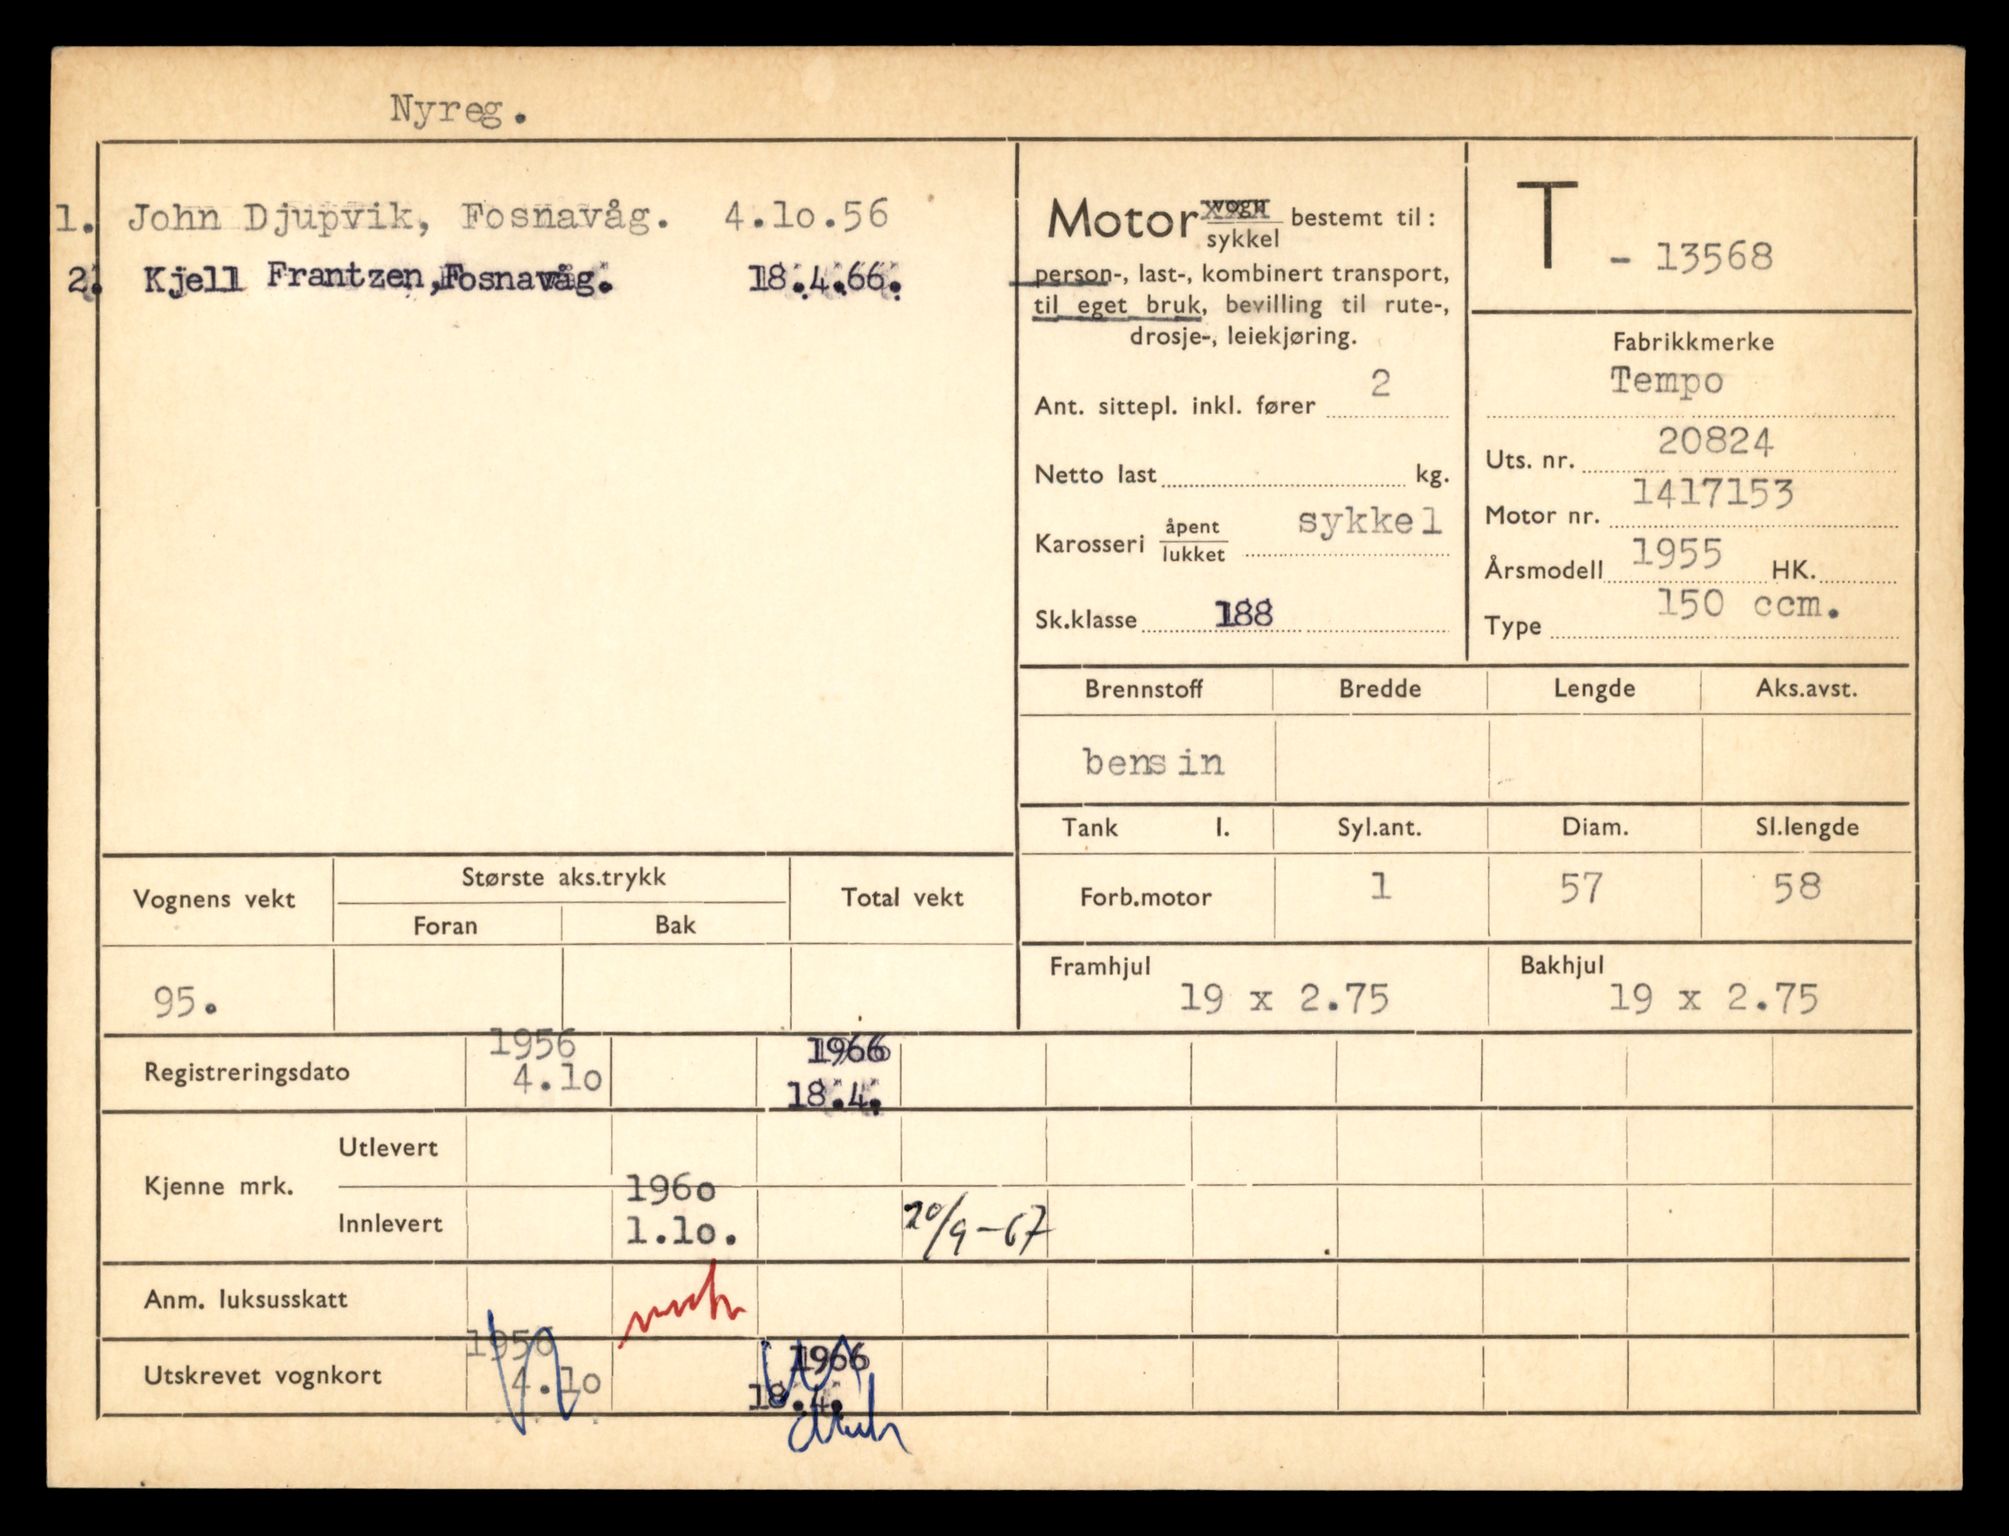 Nyreg.
1. John Djupvik, Fosnavåg. 4.10.56
2. Kjell Frantzen, Fosnavåg. 18.4.66.
Motor vogn bestemt til:
sykkel
person-, last-, kombinert transport,
til eget bruk, bevilling til rute-,
drosje-, leiekjøring.
Ant. sittepl. inkl. fører 2
Netto last kg.
Karosseri åpent sykkel
lukket
Sk.klasse 188
T - 13568
Fabrikkmerke
Tempo
Uts. nr. 20824
Motor nr. 1417153
Årsmodell 1955 HK.
Type 150 ccm.
Brennstoff Bredde Lengde Aks.avst.
bensin
Tank l. Syl.ant. Diam. Sl.lengde
Forb.motor 1 57 58
Framhjul Bakhjul
19 x 2.75 19 x 2.75
Vognens vekt Største aks.trykk Total vekt
Foran Bak
95.
1956 1966
Registreringsdato 4.10 18.4.
Utlevert
Kjenne mrk. 1960
Innlevert 1.10. 20/9-67
Anm. luksusskatt
1956 1966
Utskrevet vognkort 4.10 18.4.